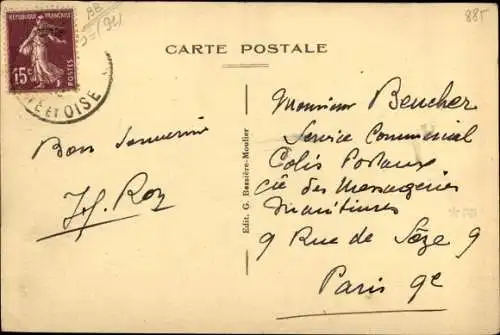 RÉPUBLIQUE FRANÇAISE
15c
POSTES
ET OISE
BB
(91)
885
CARTE POSTALE
Bon Souvenir
Edit. G. Bessière-Moulier
Monsieur Beucher
Service Commercial
Colis Postaux
Cie des Messageries
Maritimes
9 Rue de Sèze 9
Paris 9e